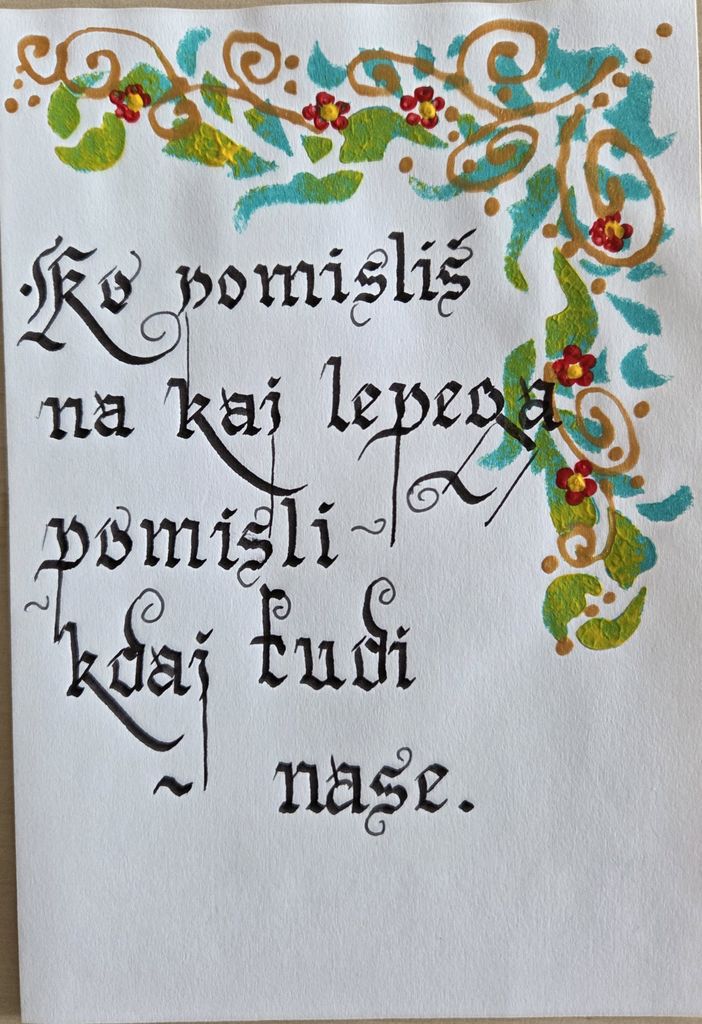 Ko pomisliš
na kaj lepega
pomisli
kdaj tudi
nase.